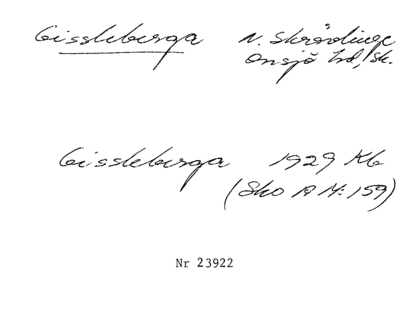 Gissleberga N. Skrävlinge
Onsjö hd, Sk.
Gissleberga 1929 Kb
(Sko A M: 159)
Nr 23922